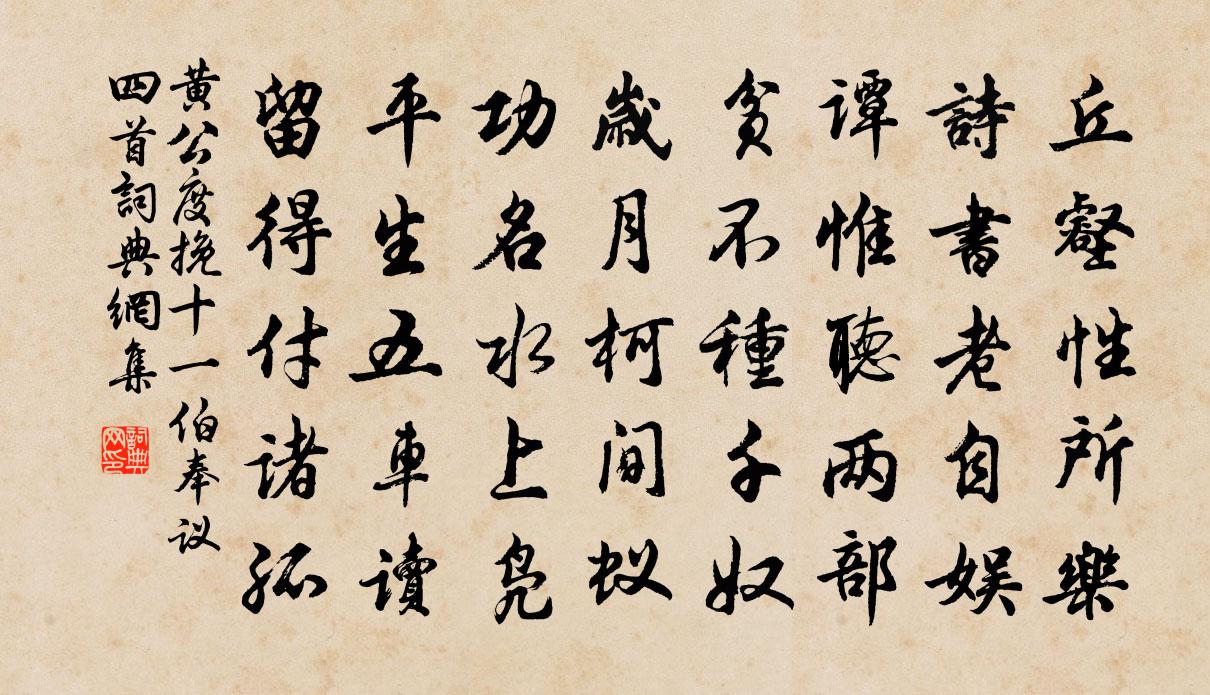 丘壑性所樂
詩書老自娱
譚惟聽两部
貧不種千奴
歲月柯间蚁
功名水上凫
平生五車讀
留得付諸孤
黄公度挽十一伯奉议
四首詞典網集
詞典网印